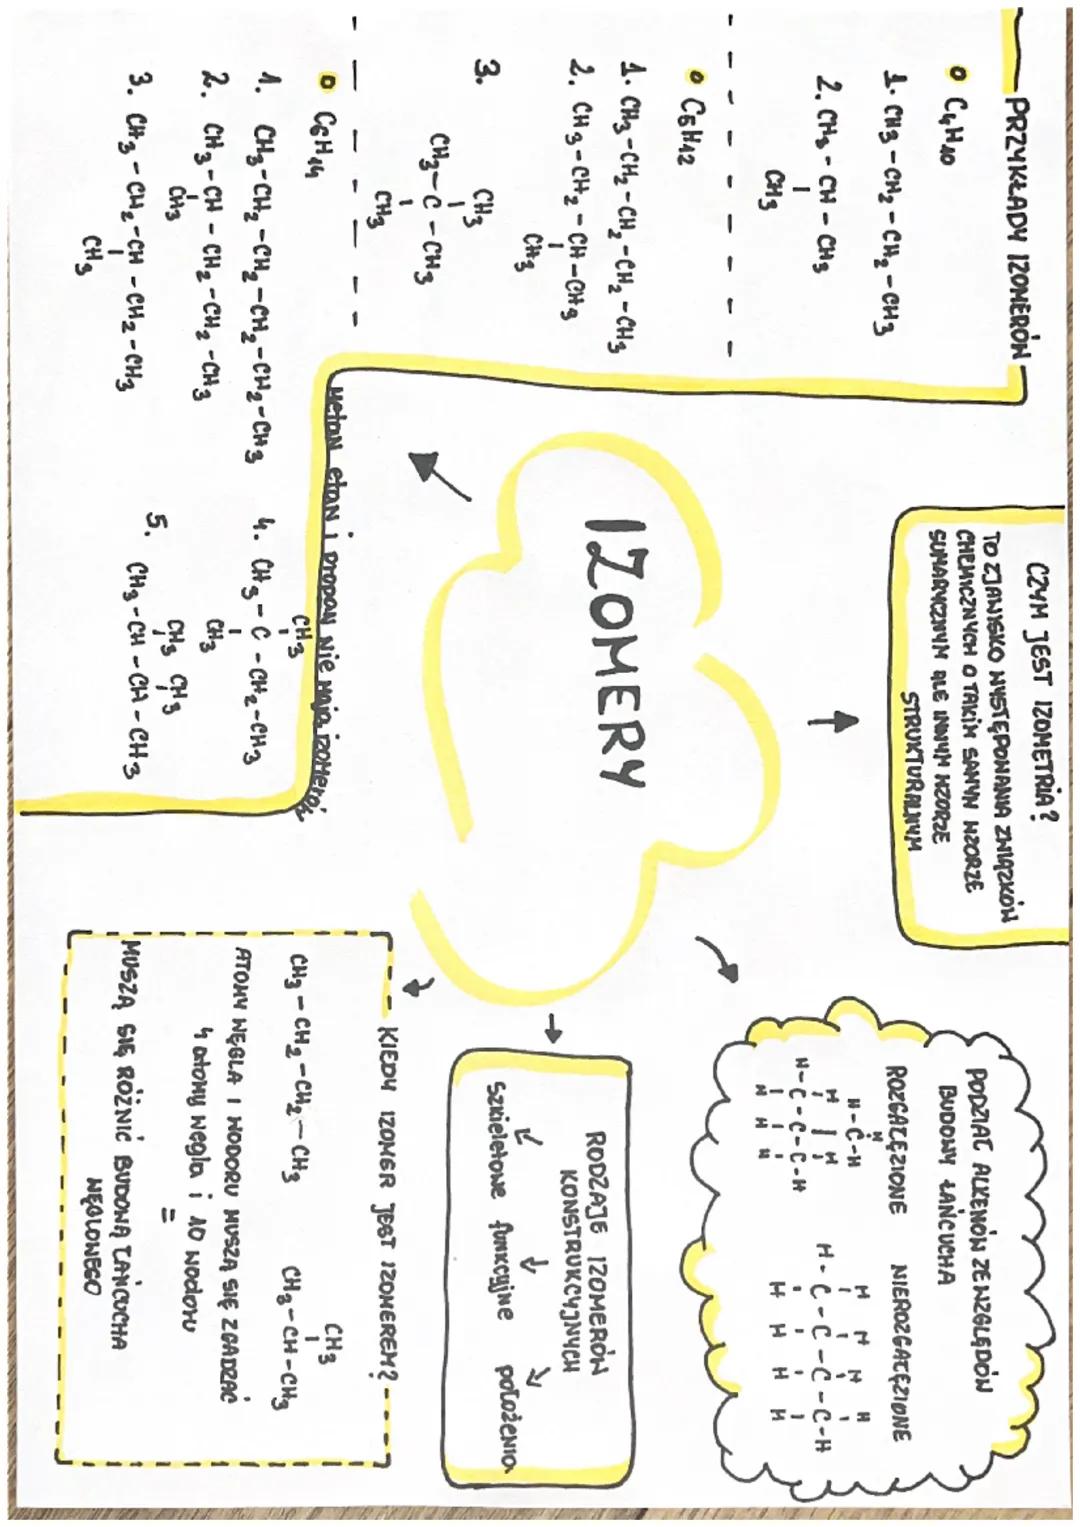 PRZYKŁADY IZOMERÓW
C4H10
1. CH3-CH2-CH2-CH3
2. CH3-CH-CH3
CH3
C5H12
1. CH3-CH2-CH2-CH2-CH3
2. CH3-CH2-CH-CH3
CH3
3.
CH3
CH3-C-CH3
CH3
C6H14
1. CH3-CH2-CH2-CH2-CH2-CH3
2. CH3-CH-CH2-CH2-CH3
CH3
3. CH3-CH2-CH-CH2-CH3
CH3
CH3
4. CH3-C-CH2-CH3
CH3
CH3 CH3
5. CH3-CH-CH-CH3
METAN etaN i propaN Nie Mają izoMerów
IZOMERY
CZYM JEST IZOMETRIA?
TO ZJAWISKO WYSTĘPOWANIA ZWIĄZKÓW
CHEMICZNYCH O TAKIM SAMYM WZORZE
SUMARYCZNYM ALE INNYM WZORZE
STRUKTURALNYM
PODZIAŁ ALKENÓW ZE WZGLĘDÓW
BUDOWY ŁAŃCUCHA
ROZGAŁĘZIONE NIEROZGAŁĘZIONE
H
H-C-H
H H
H-C-C-C-H
H H H
H H H H
H-C-C-C-C-H
H H H H
RODZAJE IZOMERÓW
KONSTRUKCYJNYCH
Szkieletowe funkcyjne położenia
KIEDY IZOMER JEST IZOMEREM?
CH3
CH3-CH2-CH2-CH3 CH3-CH-CH3
ATOMY WĘGLA I WODORU MUSZĄ SIĘ ZGADZAĆ
4 atomy węgla i 10 wodoru
=
MUSZĄ SIĘ RÓŻNIĆ BUDOWĄ ŁAŃCUCHA
WĘGLOWEGO